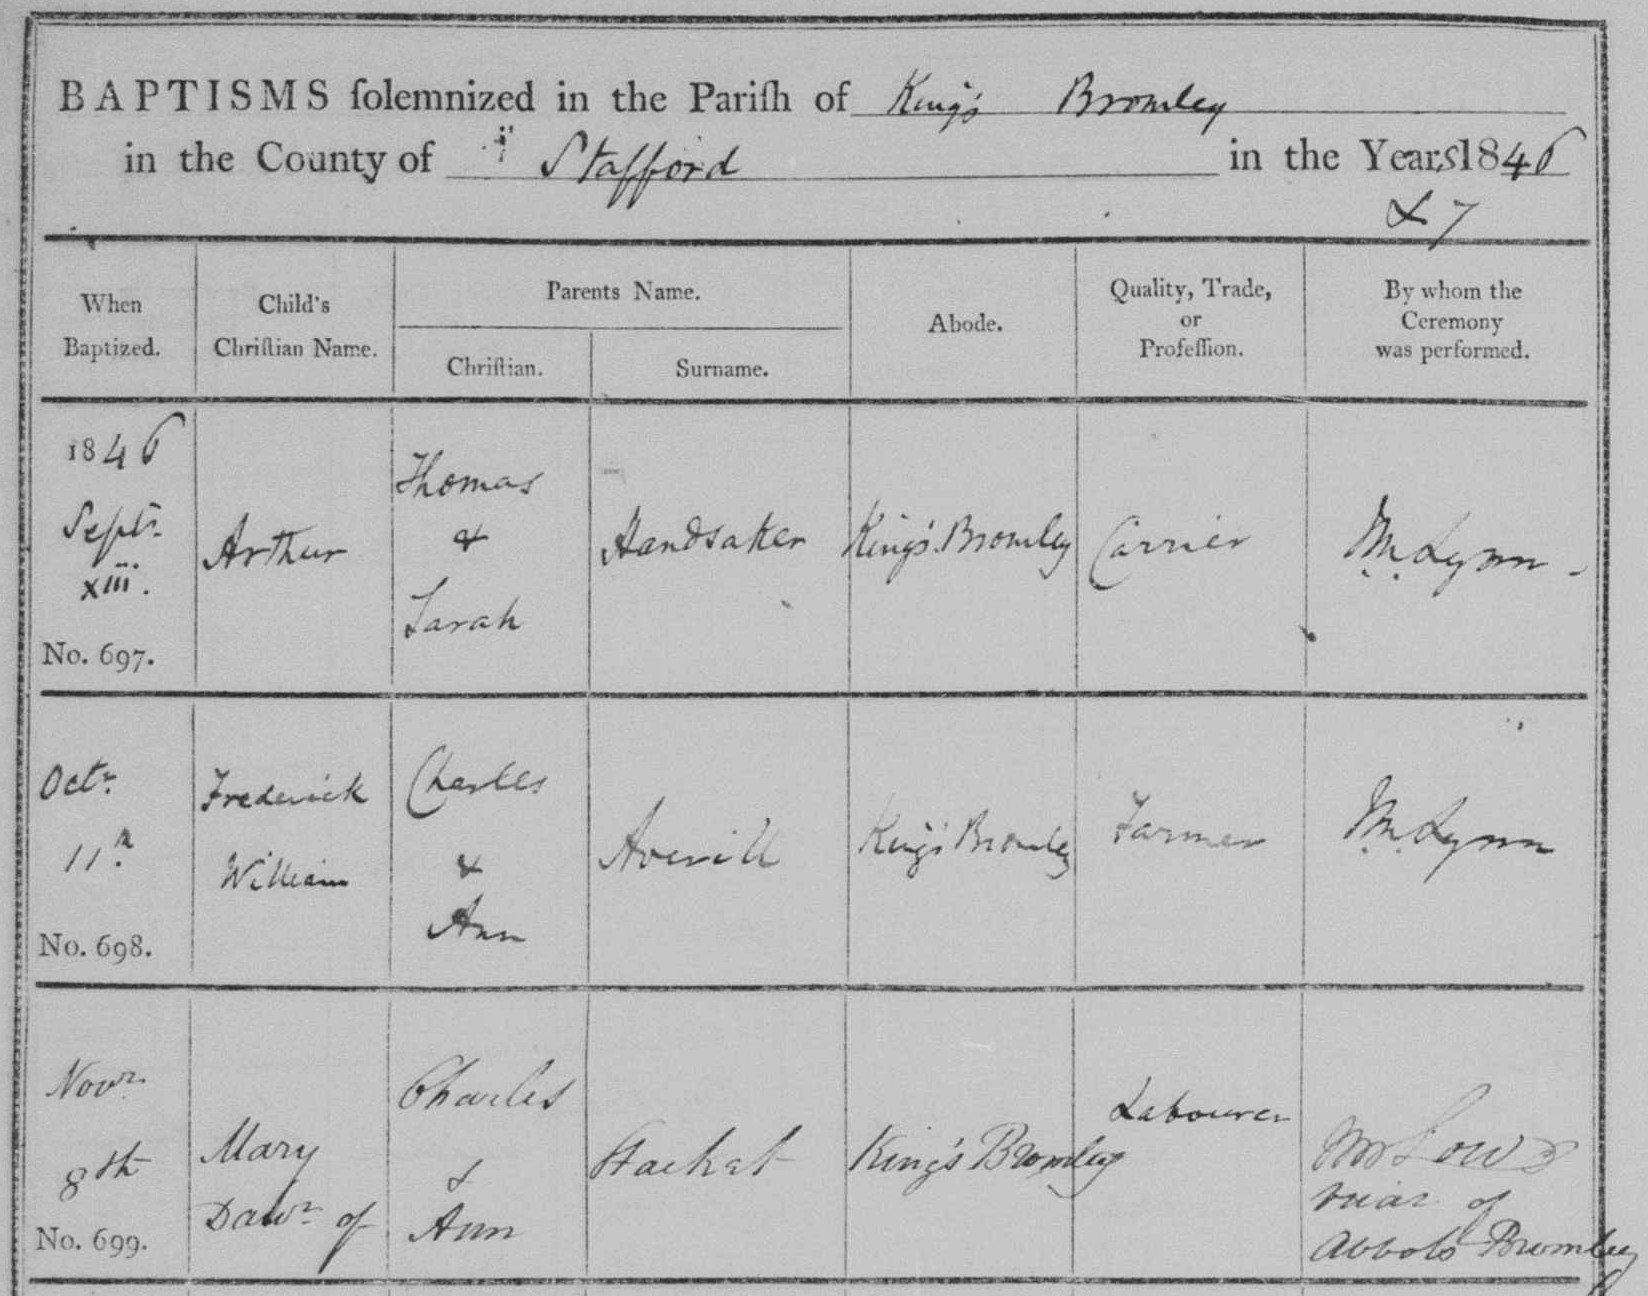 BAPTISMS ſolemnized in the Pariſh of King's Bromley
in the County of Stafford in the Years 1846
& 7
When Baptized.
Child's Chriſtian Name.
Parents Name.
Chriſtian.
Surname.
Abode.
Quality, Trade, or Profeſſion.
By whom the Ceremony was performed.
1846
Septr.
xiii.
No. 697.
Arthur
Thomas
&
Sarah
Handsaker
King's Bromley
Carrier
Lynn
Octr.
11
No. 698.
Frederick
William
Charles
&
Ann
Averill
King's Bromley
Farmer
Lynn
Novr.
8th
No. 699.
Mary
Dawr. of
Charles
&
Ann
King's Bromley
Labourer
Lowe
vicar of
Abbots Bromley